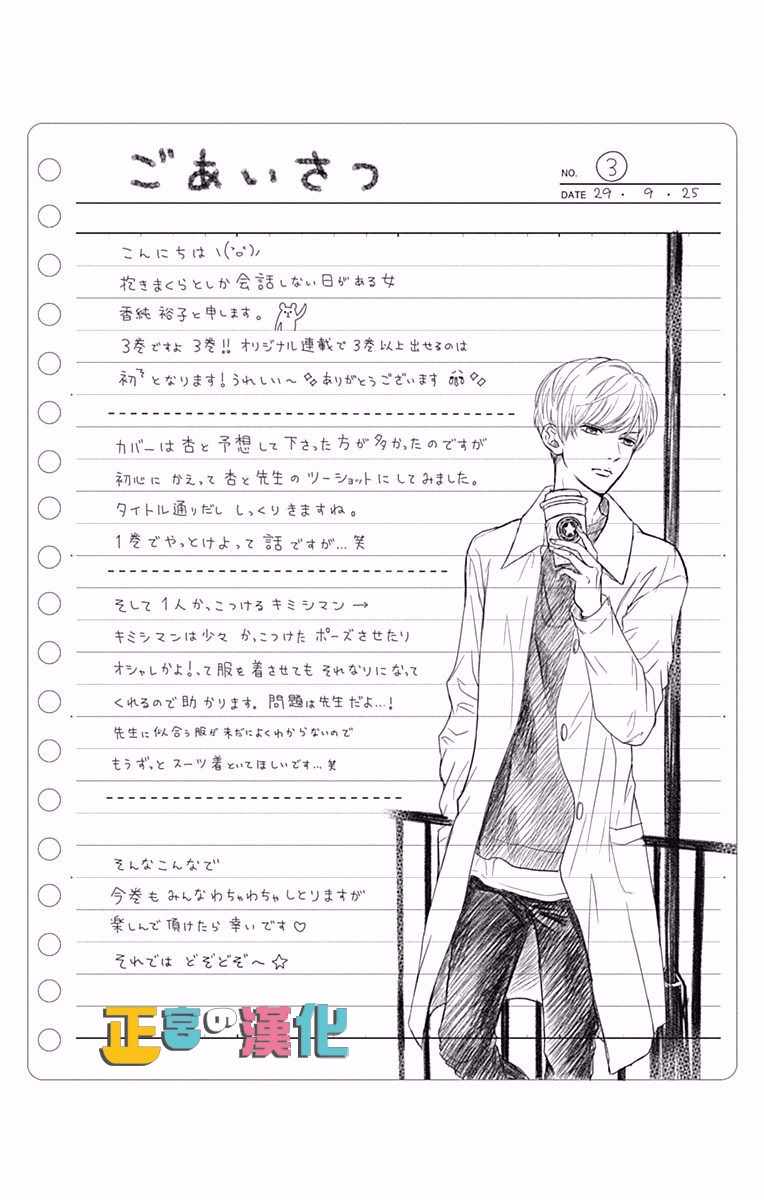 ごあいさつ
NO. 3
DATE 29・9・25
こんにちは ヽ(`o´)ﾉ
抱きまくらとしか会話しない日がある女
香純 裕子と申します。
3巻ですよ 3巻!! オリジナル連載で3巻以上出せるのは
初となります!うれしい〜ありがとうございます
カバーは杏と予想して下さった方が多かったのですが
初心にかえって杏と先生のツーショットにしてみました。
タイトル通りだし しっくりきますね。
1巻でやっとけよって話ですが…笑
そして1人かっこつけるキミシマン→
キミシマンは少々 かっこつけた ポーズさせたり
オシャレかよ!って服を着させても それなりになって
くれるので助かります。問題は先生だよ…!
先生に似合う服が未だによくわからないので
もうずっと スーツ着といてほしいです…笑
そんなこんなで
今巻も みんなわちゃわちゃしとりますが
楽しんで頂けたら 幸いです♡
それでは どぞどぞ〜☆
正宮の漢化